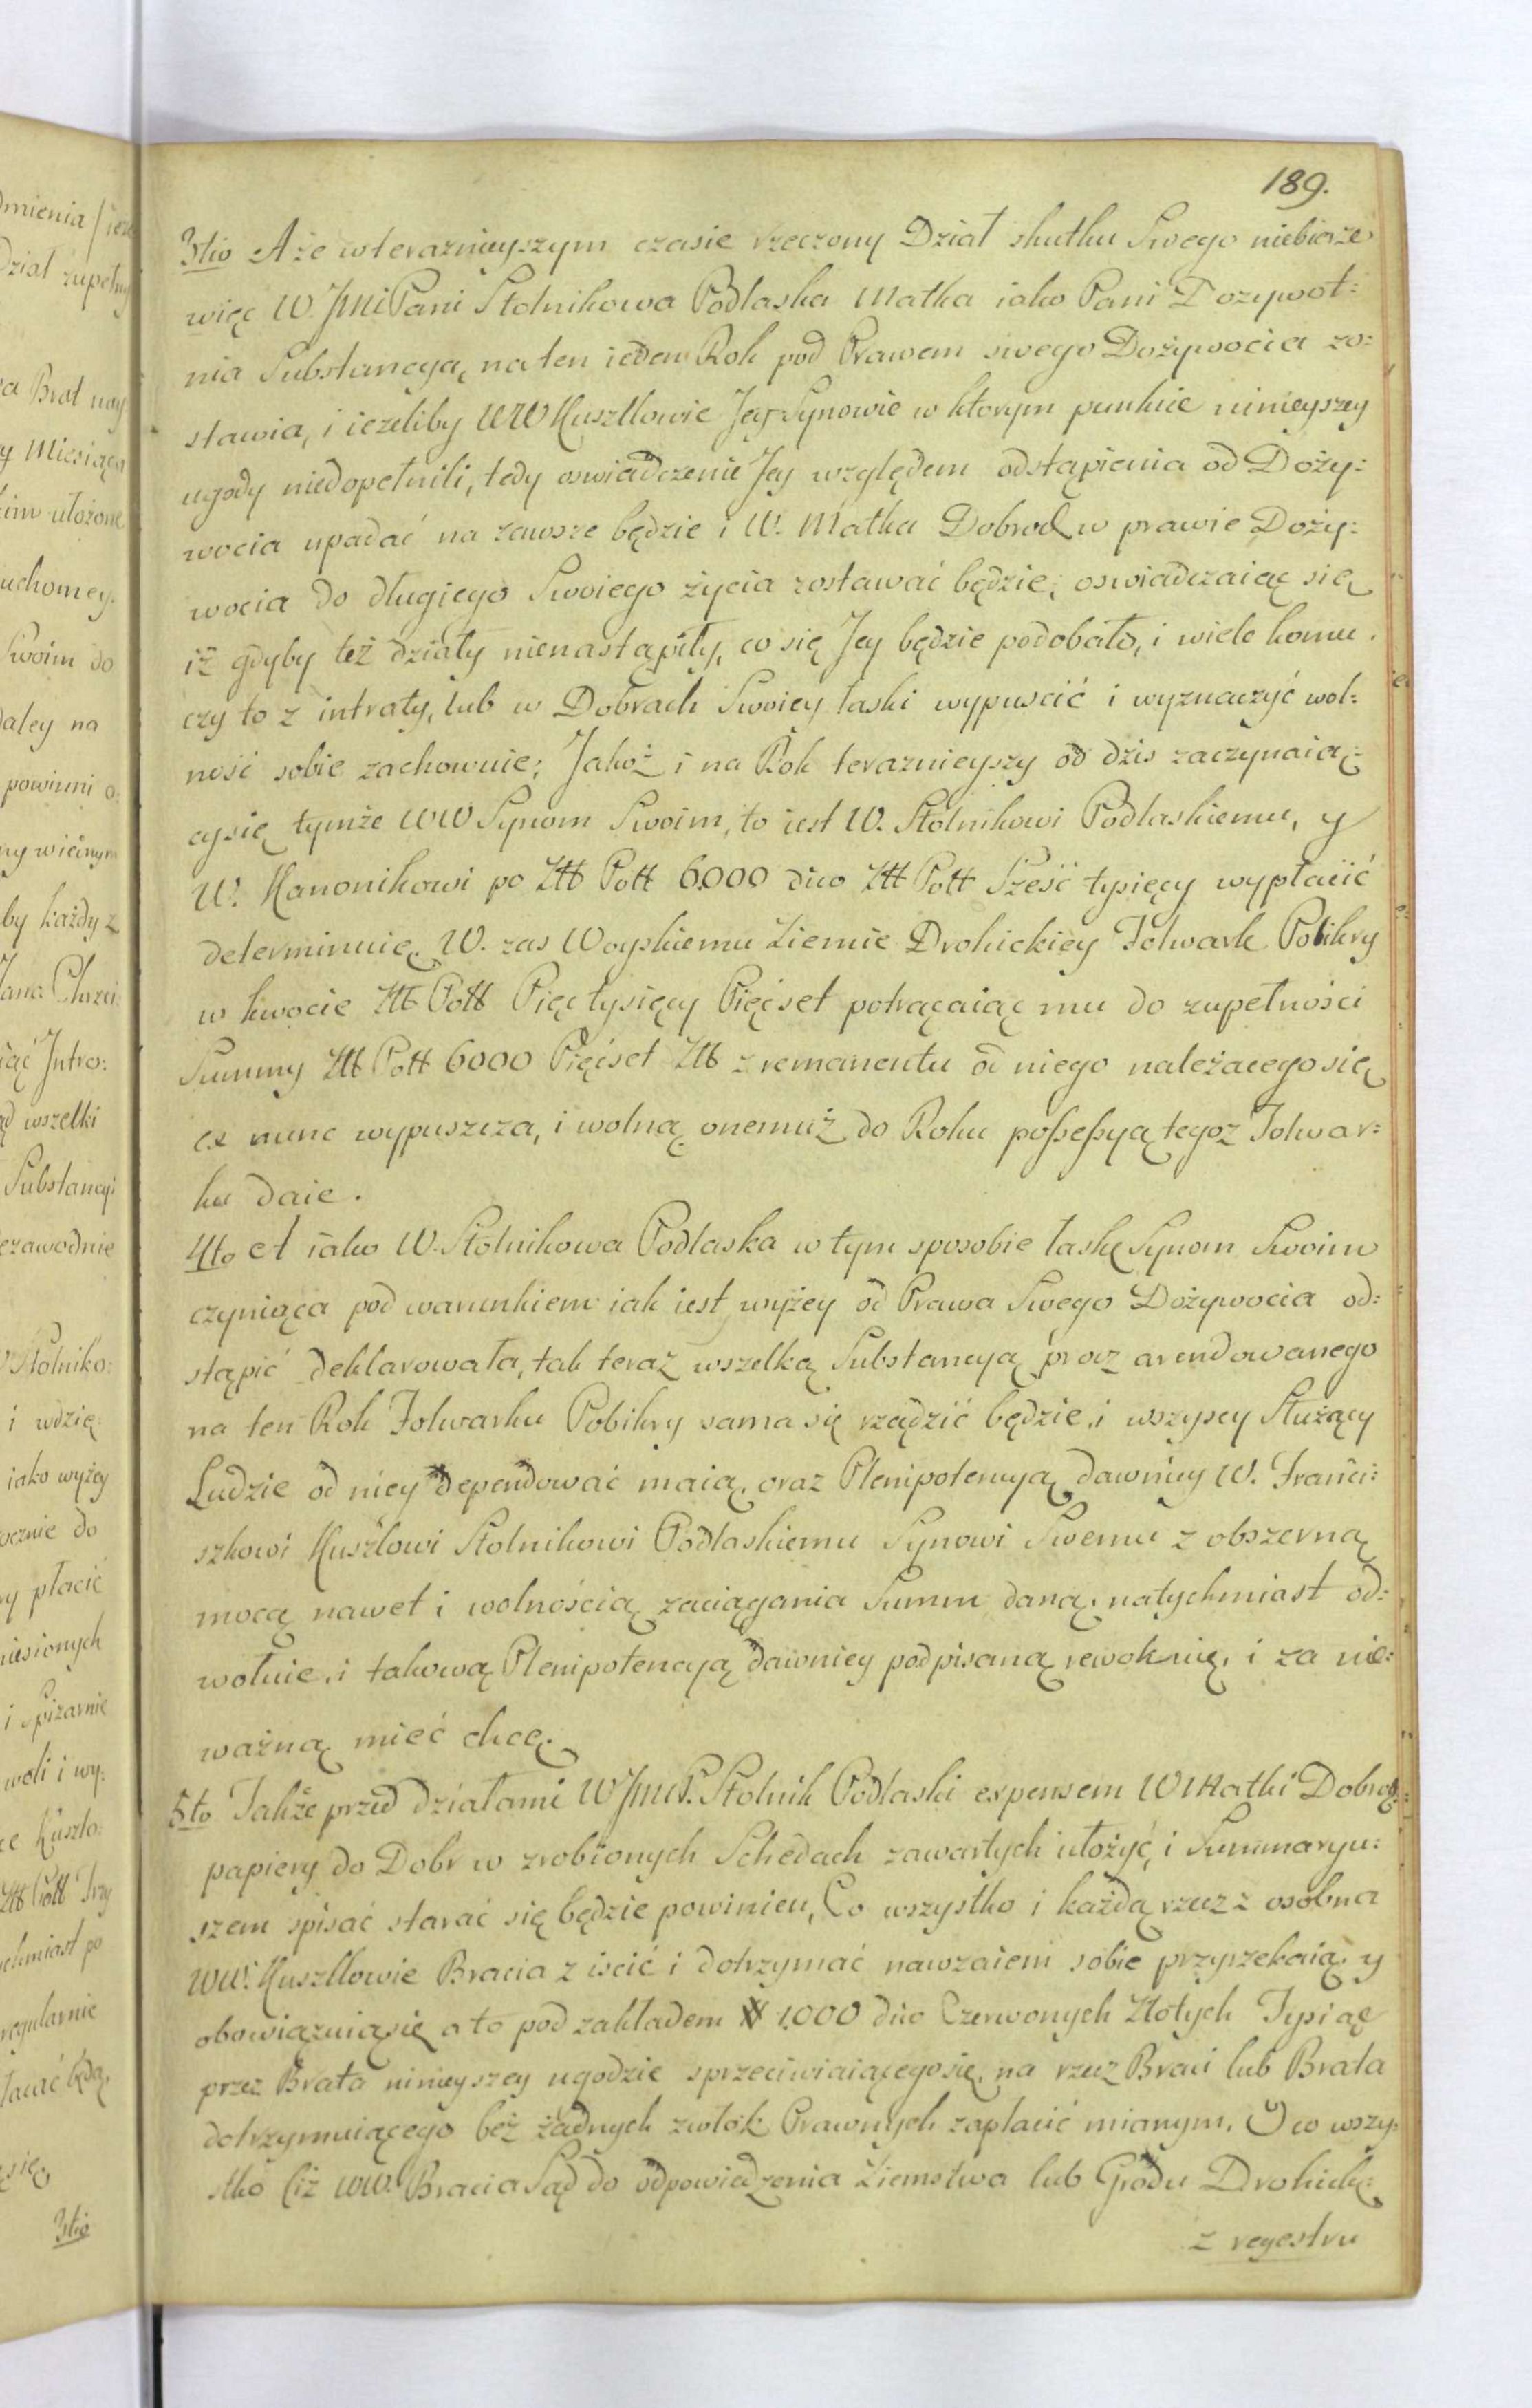 189.
3tio A że w teraznieyszym czasie rzeczony Dział skutku Swego niebierze
więc W. JMCi Pani Stolnikowa Podlaska Matka iako Pani Dożywot:
nia Substancyą na ten ieden Rok pod Prawem swego Dożywocia zo:
stawia, i ieżeliby WW Kuszllowie Jey Synowie w ktorym punkcie ninieyszey
ugody niedopełnili, tedy oswiadczenie Jey względem odstąpienia od Doży:
wocia upadać na zawsze będzie i W. Matka Dobrod w prawie Doży:
wocia do długiego Swoiego życia zostawać będzie; oswiadczaiąc się
iż gdyby też działy nienastąpiły, co się Jey będzie podobało, i wiele komu
czy to z intraty, lub w Dobrach Swoiey łaski wypuscić i wyznaczyć wol:
ność sobie zachowuie; Jakoż i na Rok teraznieyszy od dziś zaczynaią:
cysię tymże WW Synom Swoim, to iest W. Stolnikowi Podlaskiemu, y
W. Kanonikowi po Złł Poll 6000 dico Złł Poll Sześć tysięcy wypłacić
determinuie, W. zas Woyskiemu Ziemie Drohickiey Folwark Pobikry
w kwocie Złł Poll Pięc tysięcy Pięćset potrącaiąc mu do zupełności
Summy Złł Poll 6000 Pięćset Złł z remanentu od niego należącego się
ex nunc wypuszcza, i wolną onemuż do Roku possessyą tegoż Folwar:
ku daie.
4to A iako W. Stolnikowa Podlaska w tym sposobie łaskę Synom Swoim
czyniąca pod warunkiem iak iest wyżey od Prawa Swego Dożywocia od:
stąpić deklarowała, tak teraz wszelką Substancyą procz arendowanego
na ten Rok Folwarku Pobikry sama się rządzić będzie, i wszyscy Służący
Ludzie od niey dependować maią, oraz Plenipotencyą dawniey W. Franci:
szkowi Kuszlowi Stolnikowi Podlaskiemu Synowi Swemu z obszerną
mocą nawet i wolnością zaciągania Summ daną, natychmiast od:
wołuie, i takową Plenipotencyą dawniey podpisaną rewokuię, i za nie:
ważną mieć chcę.
5to Także przed działami W JMCi P. Stolnik Podlaski expensem W Matki Dobrod:
papiery do Dobr w zrobionych Schedach zawartych ułożyć, i Summaryu:
szem spisać starać się będzie powinien, Co wszystko i każdą rzecz z osobna
WW. Kuszllowie Bracia z iscić i dotrzymać nawzaiem sobie przyrzekaią, y
obowiązuią się a to pod zakładem 1.000 dico Czerwonych Złotych Tysiąc
przez Brata ninieyszey ugodzie sprzeciwiaiącego się, na rzecz Braci lub Brata
dotrzymuiącego bez żadnych zwłok Prawnych zapłacić mianym, O co wszy:
stko ciż WW. Bracia Sąd do odpowiedzenia Ziemstwa lub Grodu Drohick:
z regestru